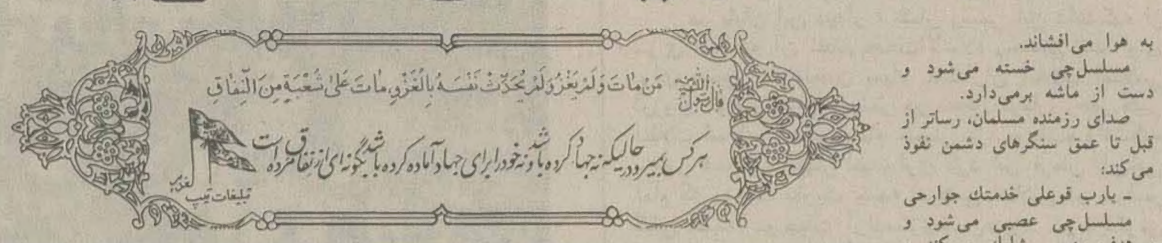 به هوا می‌افشاند.
مسلسل‌چی خسته می‌شود و
دست از ماشه برمی‌دارد.
صدای رزمنده مسلمان، رساتر از
قبل تا عمق سنگرهای دشمن نفوذ
می‌کند:
ـ یارب قوعلی خدمتك جوارحی
مسلسل‌چی عصبی می‌شود و
قال رسول الله مَنْ مٰاتَ وَلَمْ یَغْزُ وَلَمْ یُحَدِّثْ نَفْسَهُ بِالْغَزْوِ، مٰاتَ عَلیٰ شُعْبَةٍ مِنَ النِّفٰاقِ
هرکس بمیرد در حالیکه نه جهاد کرده باشد و نه خود را برای جهاد آماده کرده باشد بگونه‌ای از نفاق مرده است
تبلیغات تیپ الغدیر